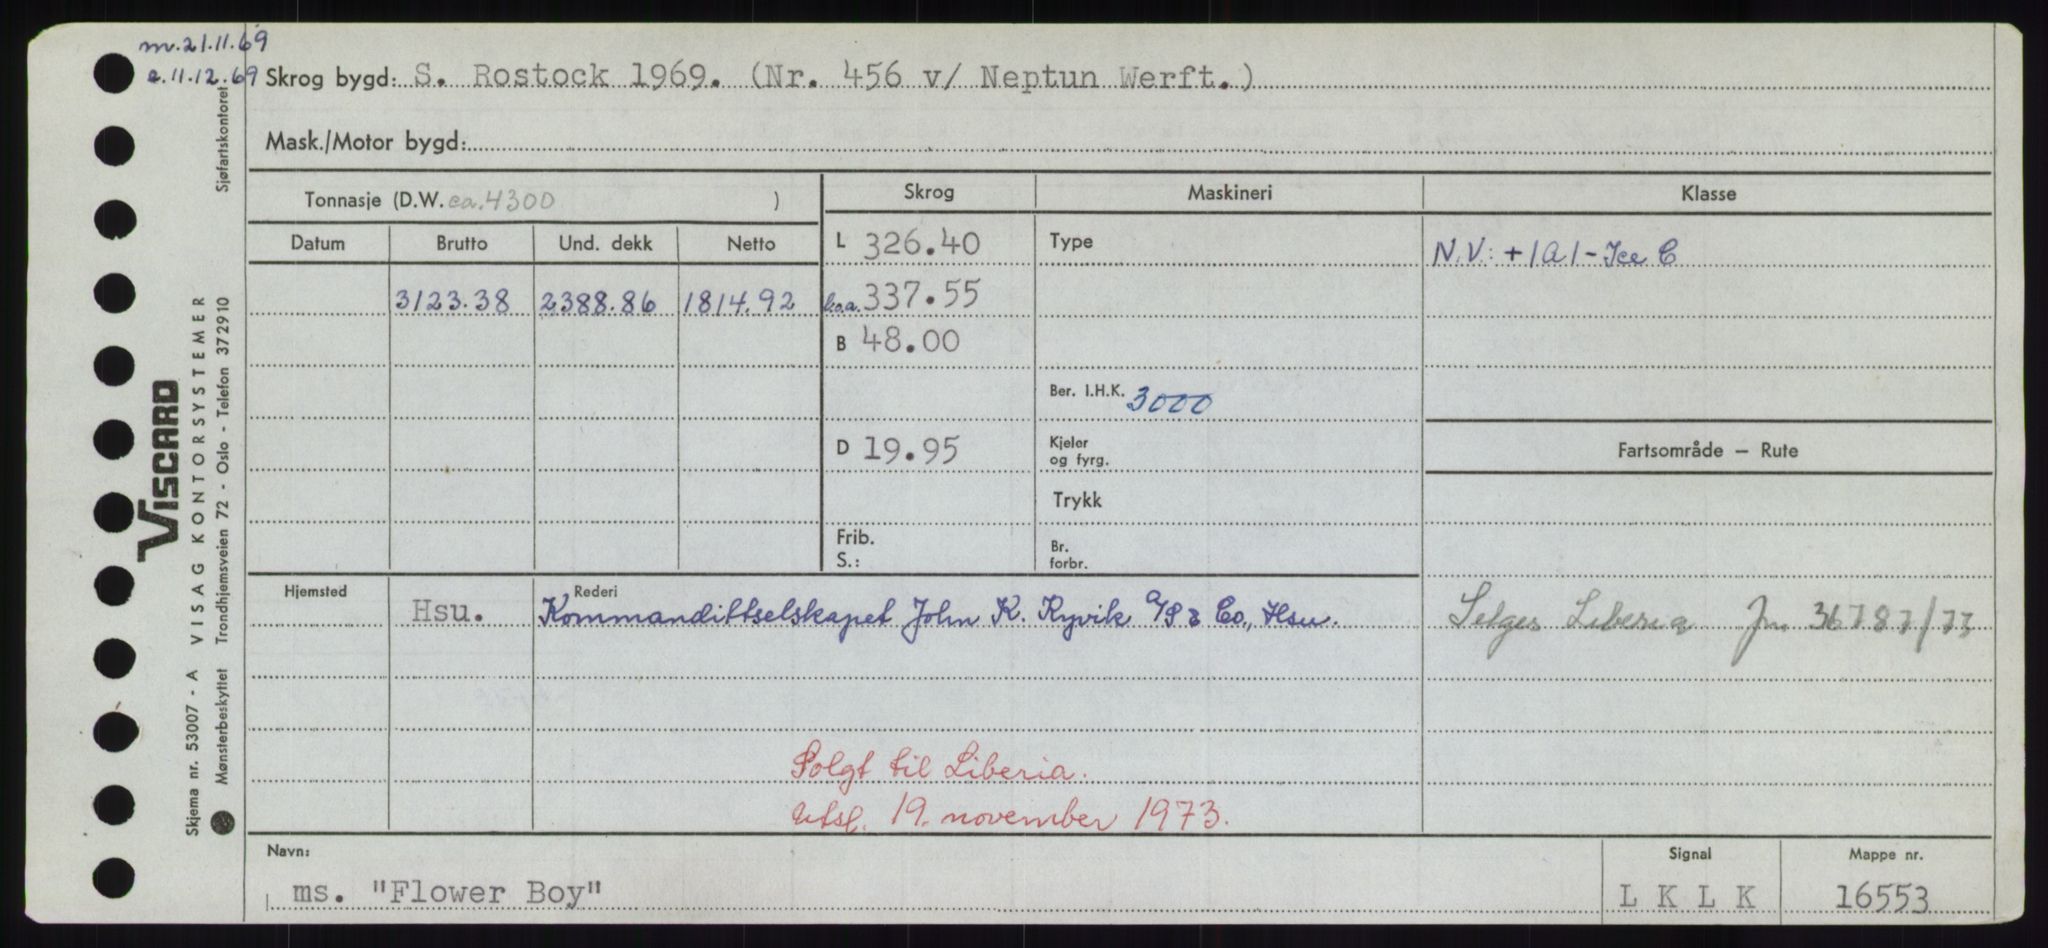 m. 21.11.69
e. 11.12.69
Skrog bygd: S. Rostock 1969. (Nr. 456 v/ Neptun Werft.)
Mask./Motor bygd:
Tonnasje (D.W. ca. 4300 )
Skrog Maskineri Klasse
Datum Brutto Und. dekk Netto
L 326.40 Type N.V: +1A1-Ice C
3123.38 2388.86 1814.92 l.o.a. 337.55
B 48.00
Ber. I.H.K. 3000
D 19.95 Kjeler
og fyrg.
Fartsområde – Rute
Trykk
Frib.
S.:
Br.
forbr.
Hjemsted Hsu. Rederi Kommandittselskapet John K. Ryvik A/S & Co., Hsu.
Selges Liberia Jnr. 36787/73
Solgt til Liberia.
Utsl. 19. november 1973.
Navn: ms. "Flower Boy"
Signal L K L K
Mappe nr. 16553
Sjøfartskontoret
VISCARD
VISAG KONTORSYSTEMER
Trondhjemsveien 72 - Oslo - Telefon 372910
Skjema nr. 53007 - A
Mønsterbeskyttet